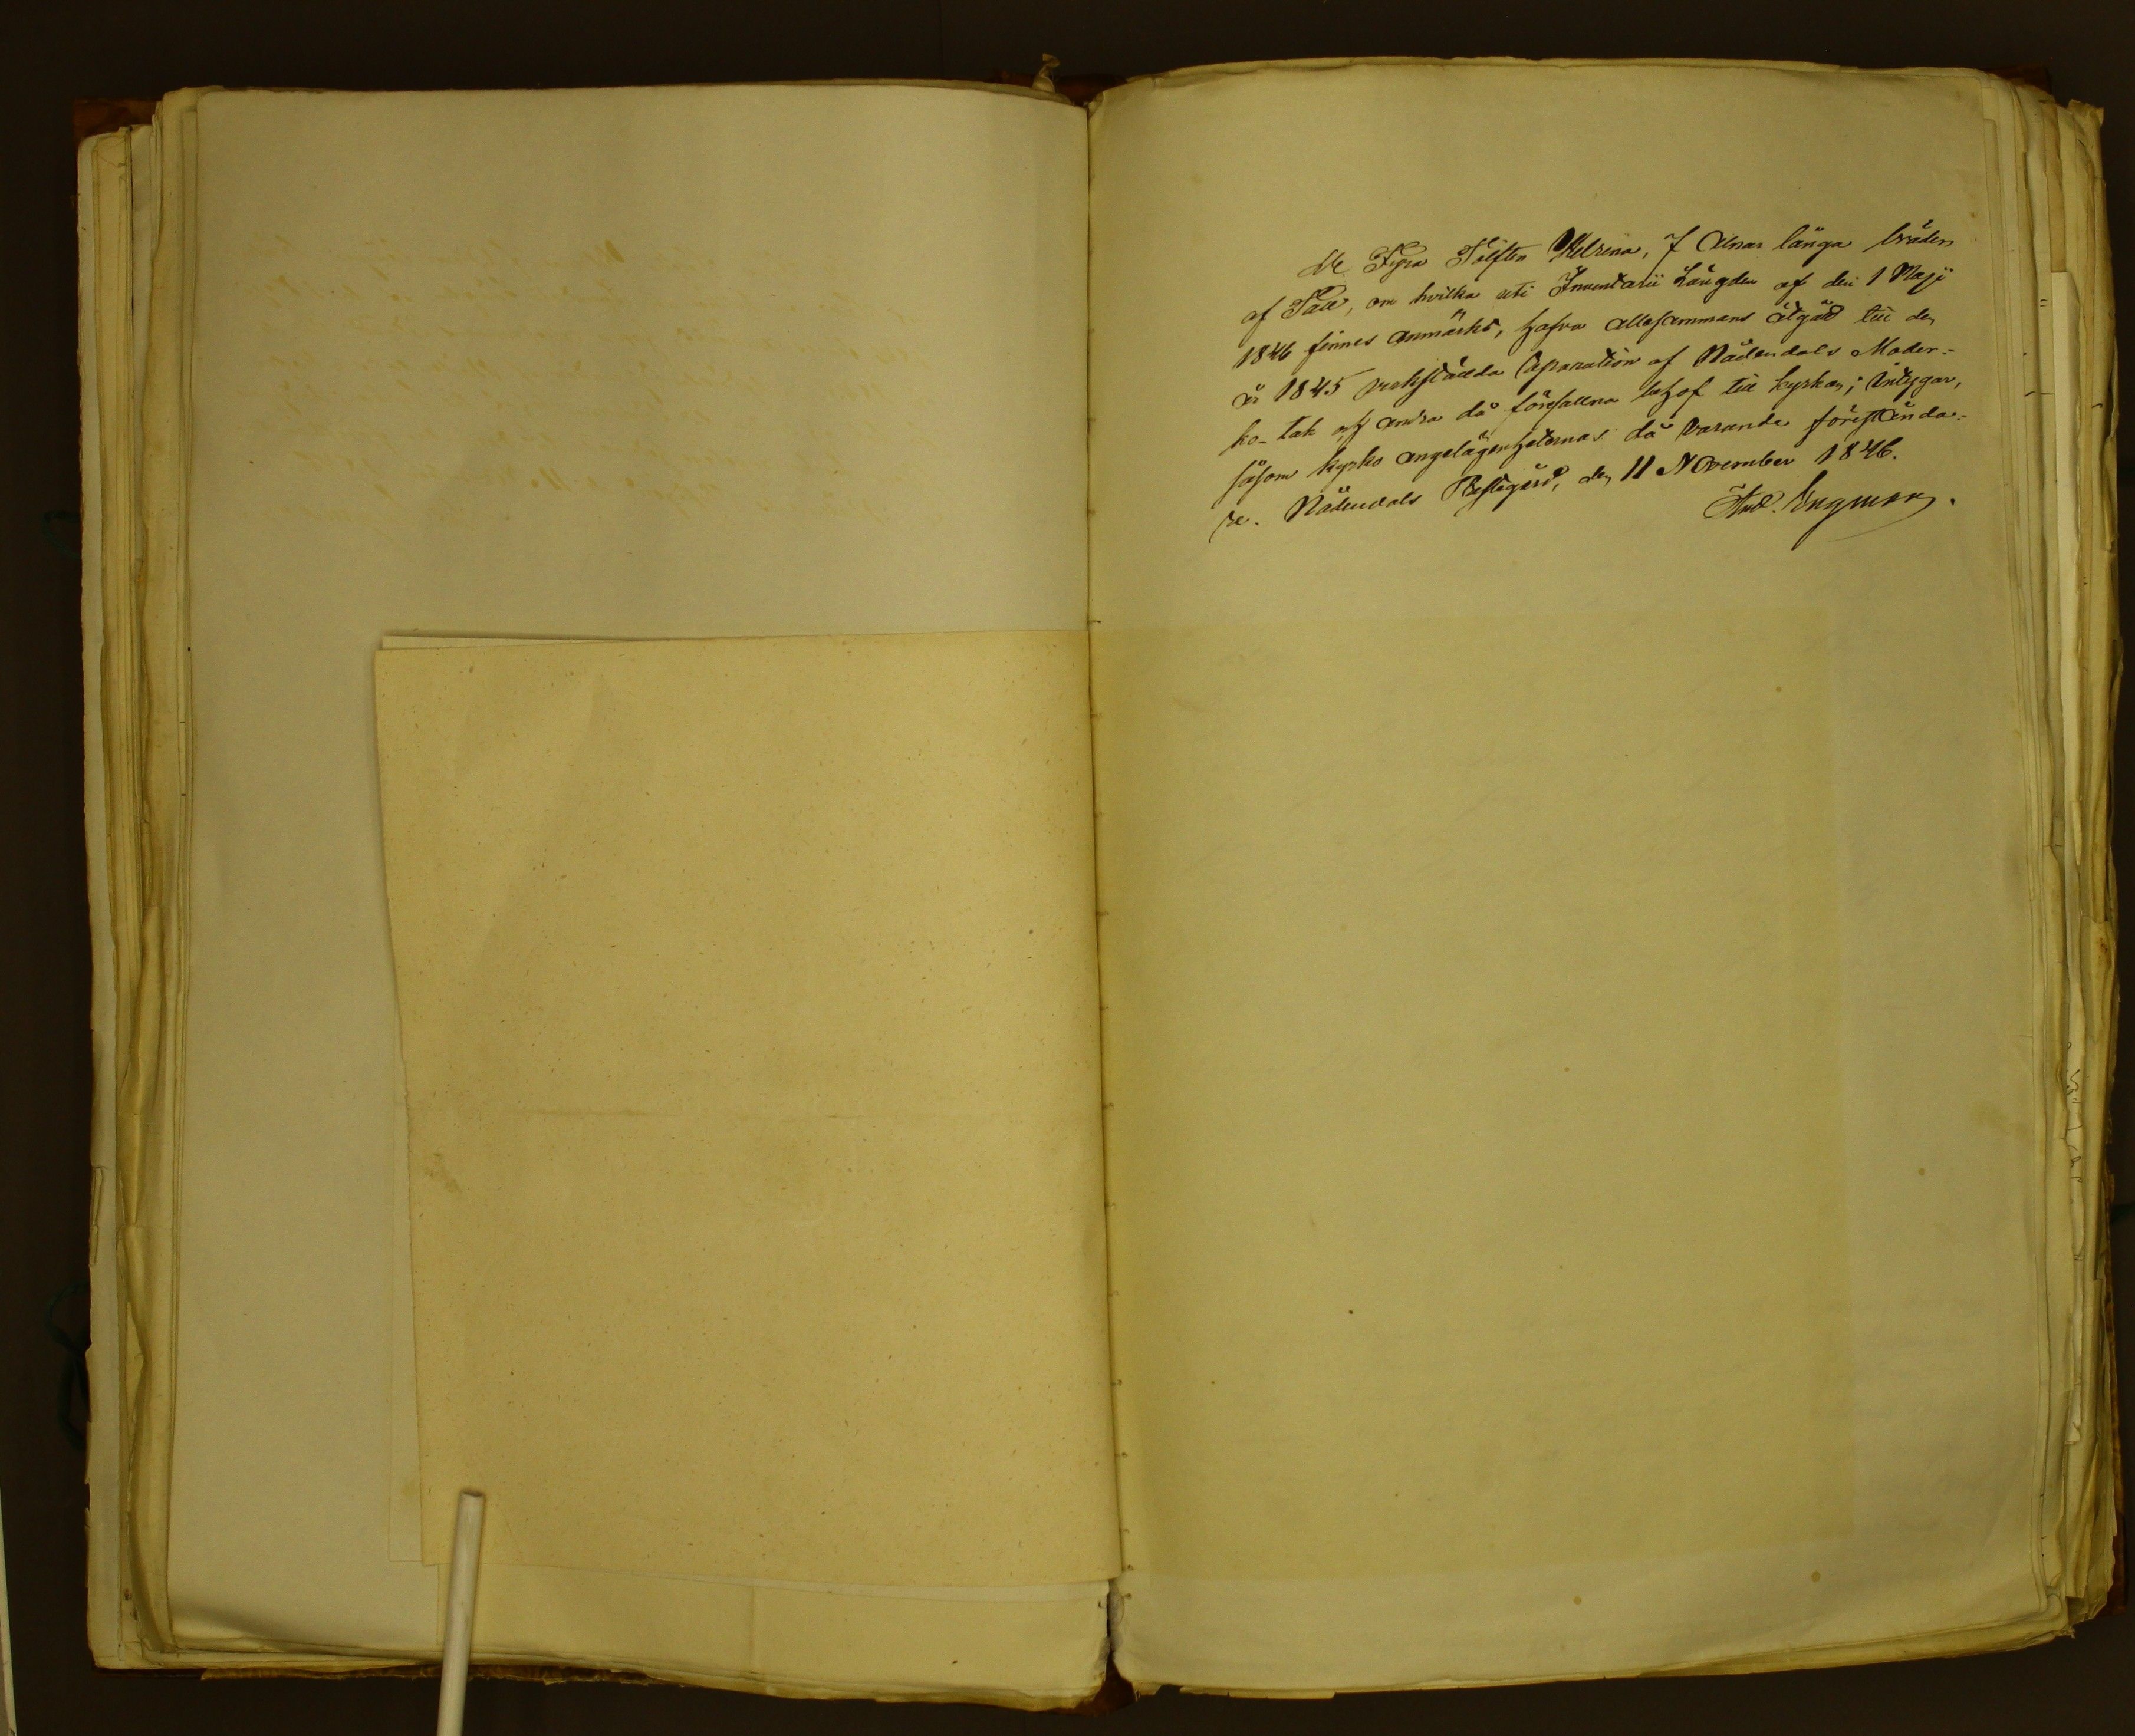 De Fyra Tolfter Helrena, 7 Alnar långa bräden
af Tall, om hvilka uti Inventarii Längden af den 1 Maji
1846 finnes anmärkt, hafva allesammans åtgått till den
år 1845 verkställda Reparation af Nådendals Moder-
ko-tak och andra då förefallna behof till kyrkan; intygar,
såsom kyrko angelägenheternas då varande förestånda-
re. Nådendals Prestgård, den 11 November 1846.
And. Engman.